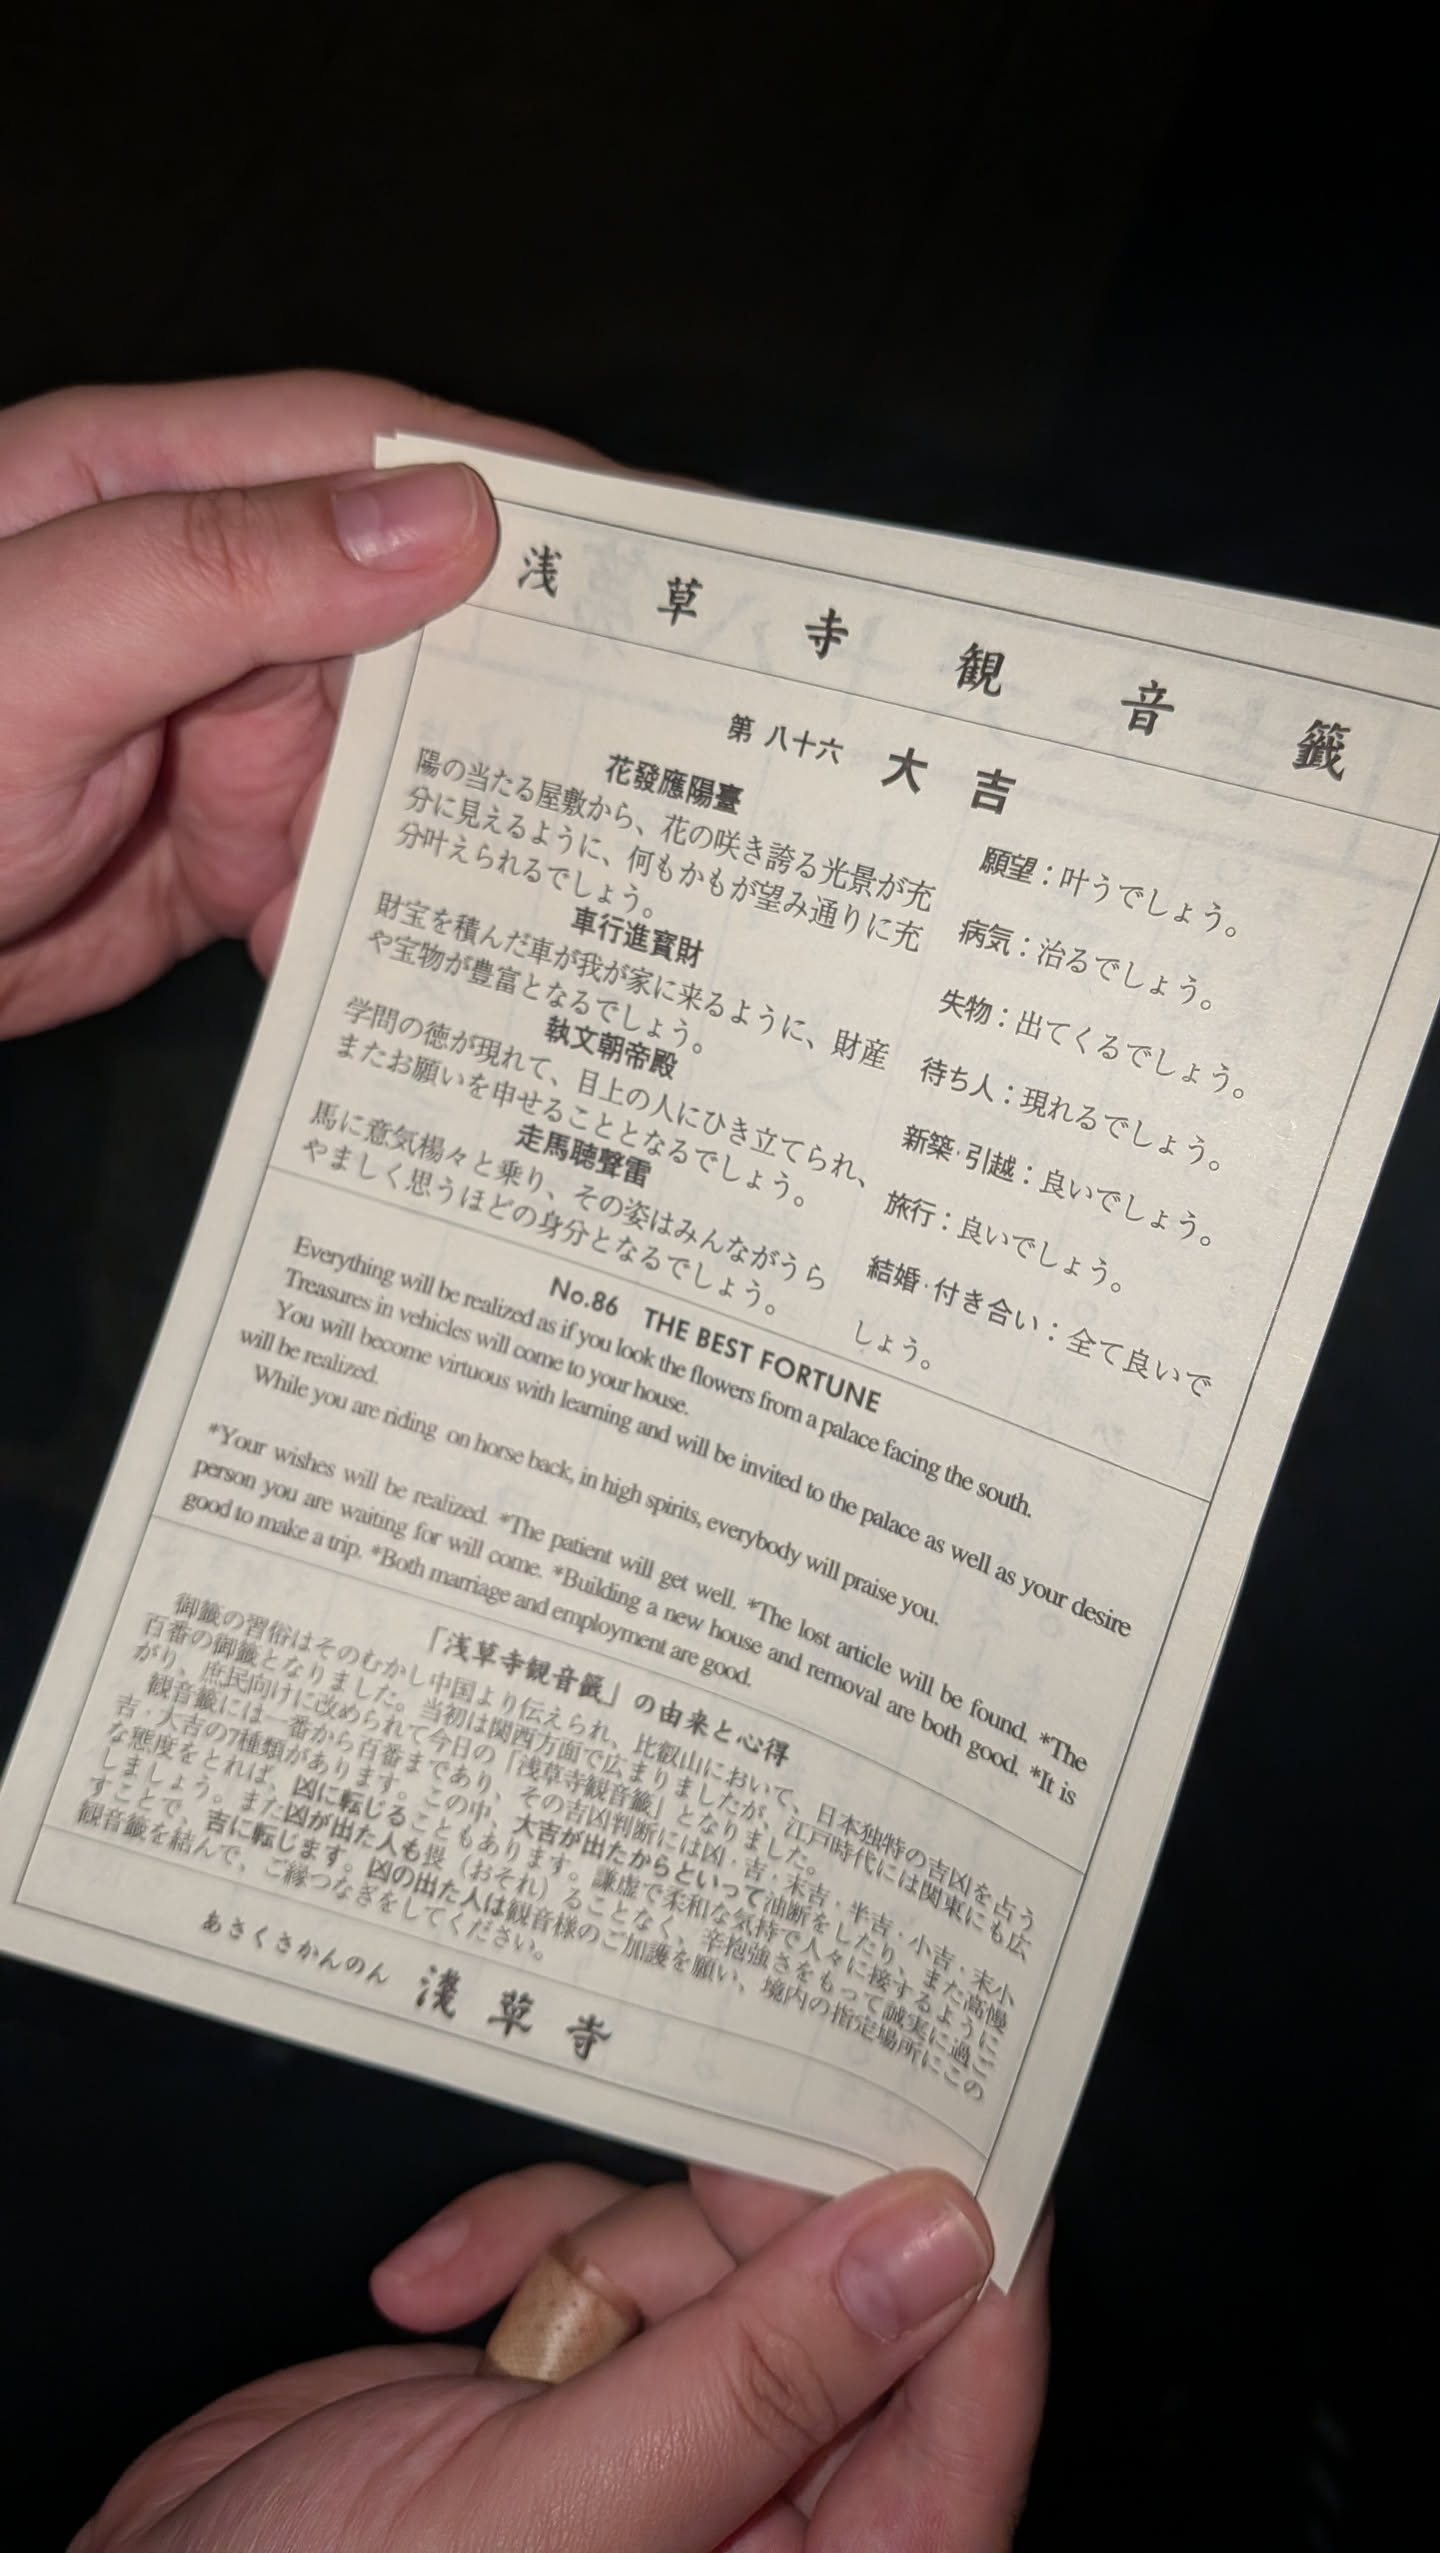 浅草寺観音籤
第八十六 大吉
花發應陽臺
陽の当たる屋敷から、花の咲き誇る光景が充
分に見えるように、何もかもが望み通りに充
分叶えられるでしょう。
車行進寳財
財宝を積んだ車が我が家に来るように、財産
や宝物が豊富となるでしょう。
執文朝帝殿
学問の徳が現れて、目上の人にひき立てられ、
またお願いを申せることとなるでしょう。
走馬聴聲雷
馬に意気楊々と乗り、その姿はみんながうら
やましく思うほどの身分となるでしょう。
願望：叶うでしょう。
病気：治るでしょう。
失物：出てくるでしょう。
待ち人：現れるでしょう。
新築·引越：良いでしょう。
旅行：良いでしょう。
結婚·付き合い：全て良いで
しょう。
No.86 THE BEST FORTUNE
Everything will be realized as if you look the flowers from a palace facing the south.
Treasures in vehicles will come to your house.
You will become virtuous with learning and will be invited to the palace as well as your desire
will be realized.
While you are riding on horse back, in high spirits, everybody will praise you.
*Your wishes will be realized. *The patient will get well. *The lost article will be found. *The
person you are waiting for will come. *Building a new house and removal are both good. *It is
good to make a trip. *Both marriage and employment are good.
「浅草寺観音籤」の由来と心得
御籤の習俗はそのむかし中国より伝えられ、比叡山において、日本独特の吉凶を占う
百番の御籤となりました。当初は関西方面で広まりましたが、江戸時代には関東にも広
がり、庶民向けに改められて今日の「浅草寺観音籤」となりました。
観音籤には一番から百番まであり、その吉凶判断には凶・吉・末吉・半吉・小吉・末小
吉・大吉の7種類があります。この中、大吉が出たからといって油断をしたり、また高慢
な態度をとれば、凶に転じることもあります。謙虚で柔和な気持で人々に接するように
しましょう。また凶が出た人も畏（おそれ）ることなく、辛抱強さをもって誠実に過ご
すことで、吉に転じます。凶の出た人は観音様のご加護を願い、境内の指定場所にこの
観音籤を結んで、ご縁つなぎをしてください。
あさくさかんのん 淺草寺